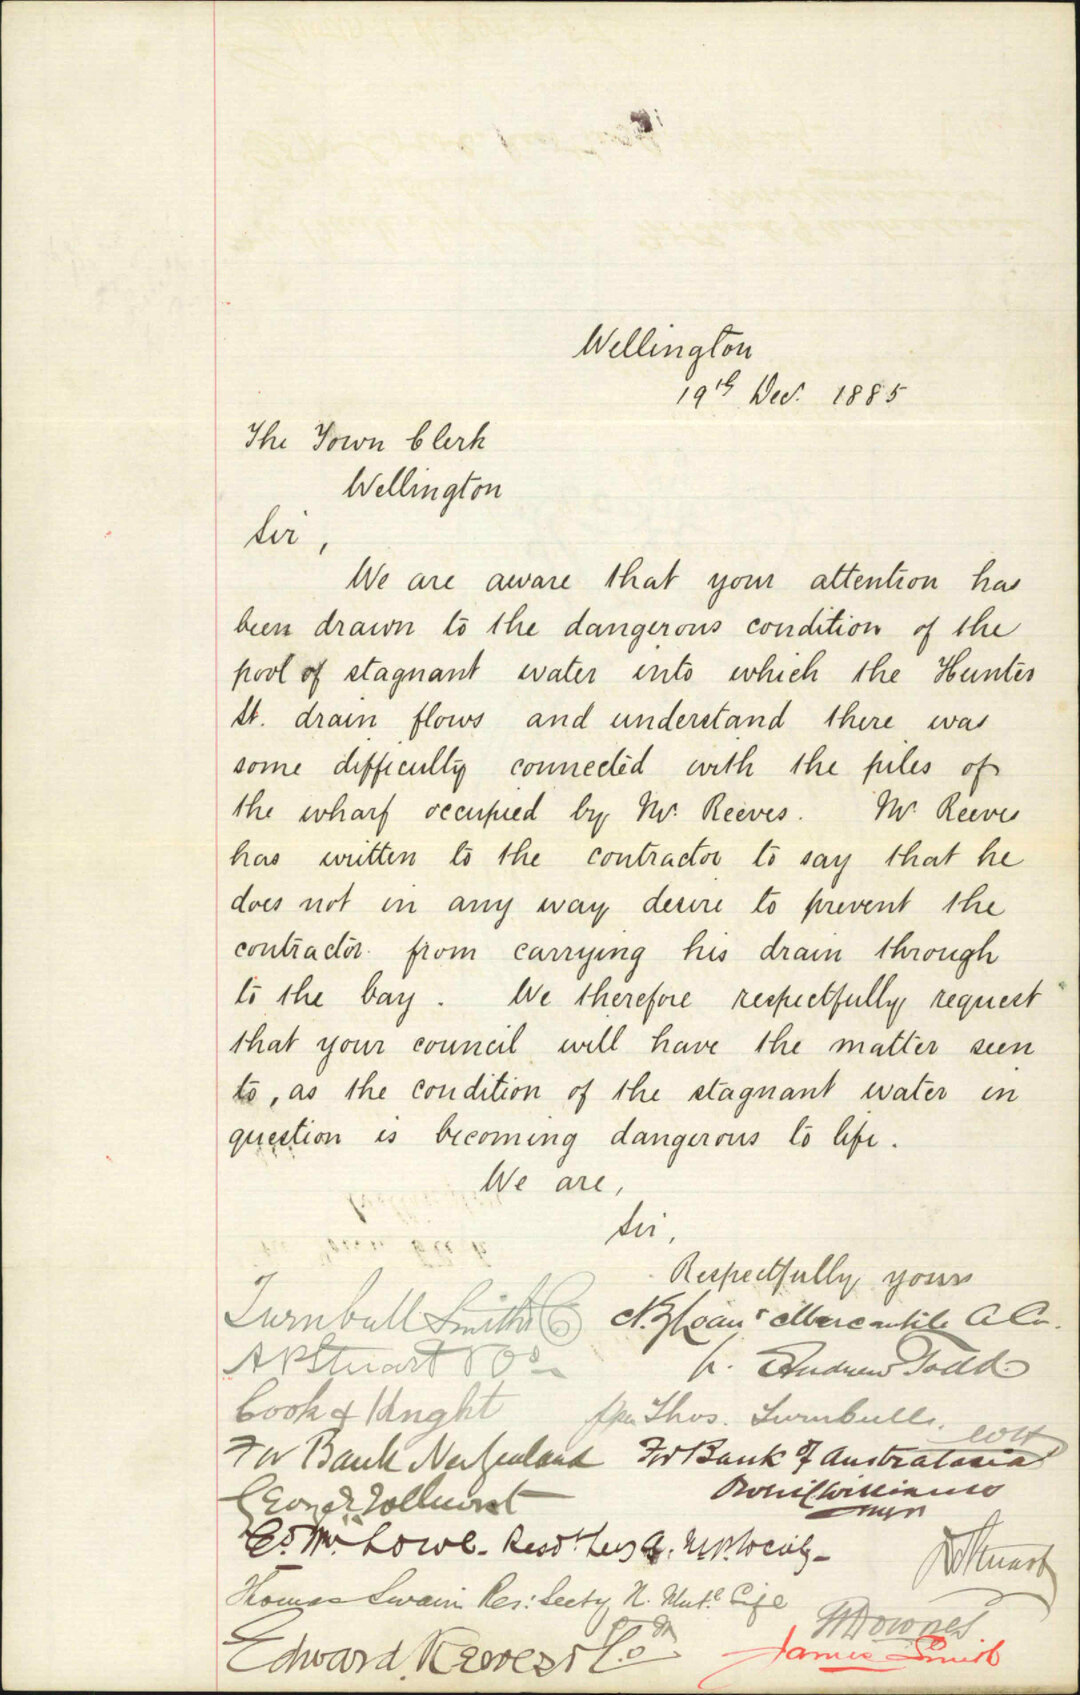 Wellington
19th Dec. 1885
The Town Clerk
Wellington
Sir,
We are aware that your attention has
been drawn to the dangerous condition of the
pool of stagnant water into which the Hunter
St. drain flows and understand there was
some difficulty connected with the piles of
the wharf occupied by Mr. Reeves. Mr. Reeves
has written to the contractor to say that he
does not in any way desire to prevent the
contractor from carrying his drain through
to the bay. We therefore respectfully request
that your council will have the matter seen
to, as the condition of the stagnant water in
question is becoming dangerous to life.
We are,
Sir,
Respectfully yours
Turnbull Smith & Co
N.Z. Loan & Mercantile A Co.
A P Stuart & Co
p. Andrew Todd
Cook & Knight
Thos. Turnbull
For Bank New Zealand
For Bank of Australasia
George Tolhurst
Williams
Ed. W. Lowe. Resdt Secy A. M. P. Society
Stuart
Thomas Swain Res: Secty N. Mutl Life
Downes
Edward Reeves & Co
James Smith